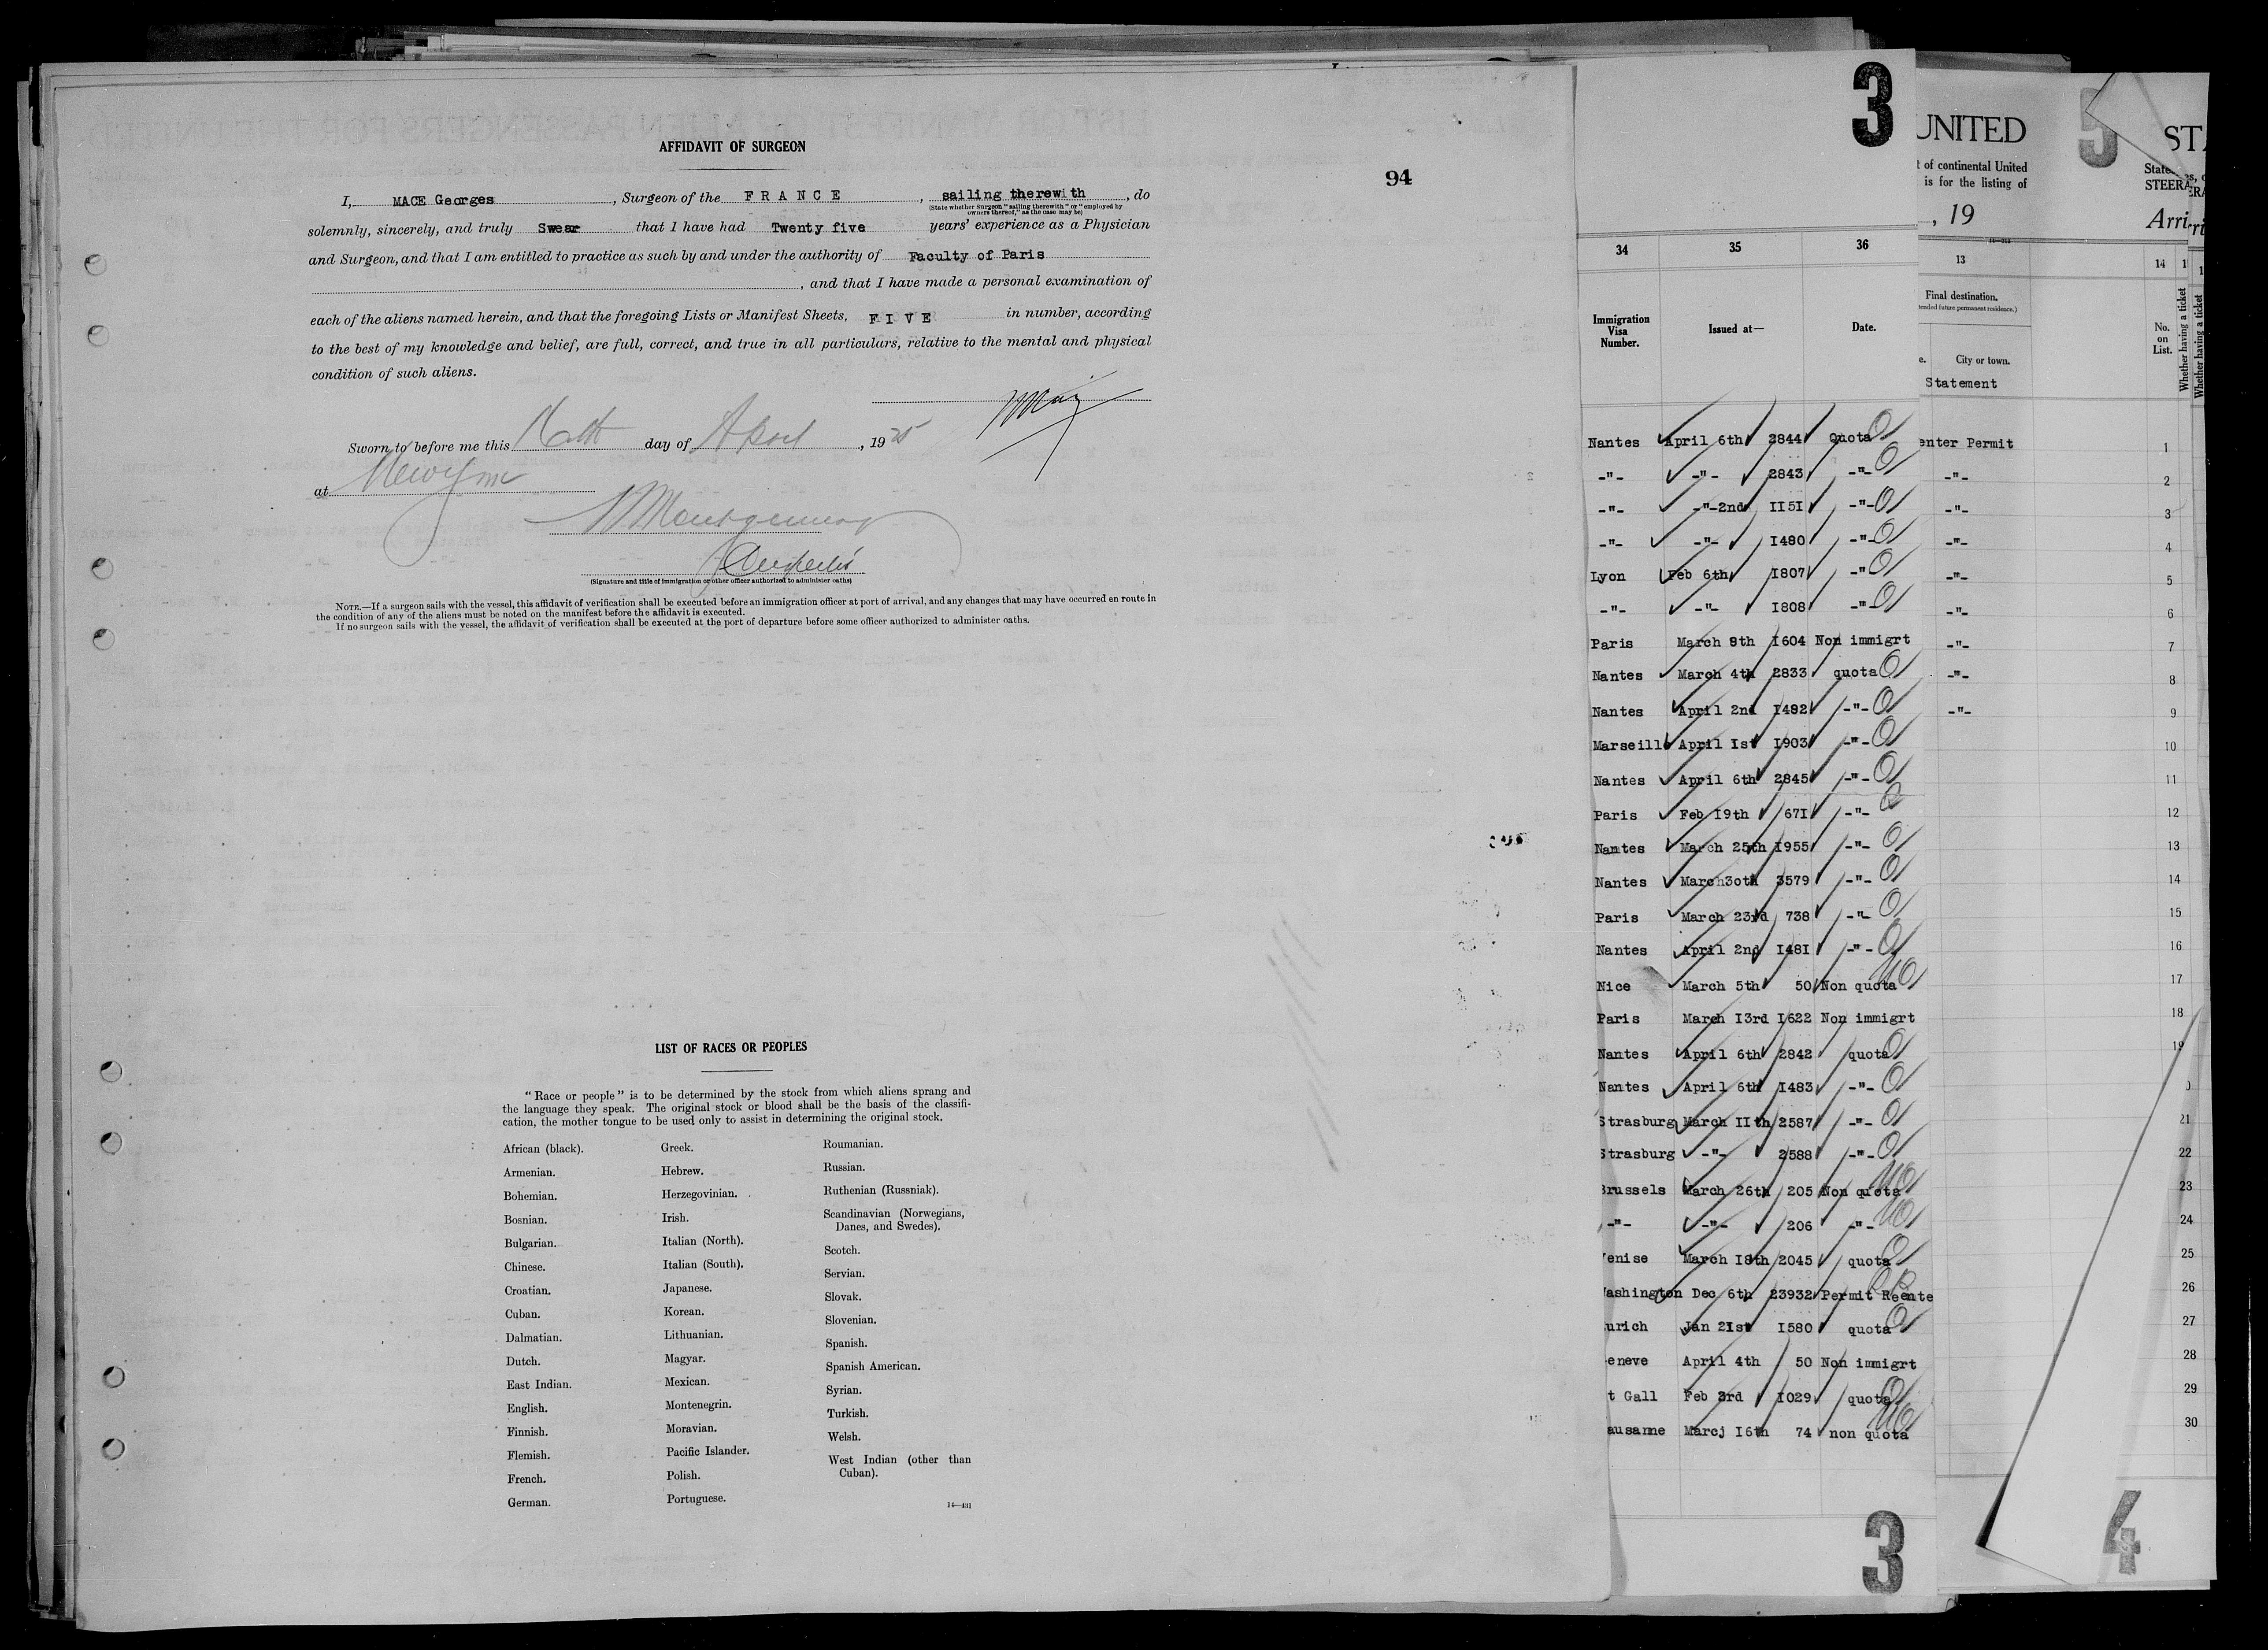 AFFIDAVIT OF SURGEON
94
I, MACE Georges, Surgeon of the FRANCE, sailing therewith, do
(State whether Surgeon "sailing therewith" or "employed by
owners thereof," as the case may be)
solemnly, sincerely, and truly Swear that I have had Twenty five years' experience as a Physician
and Surgeon, and that I am entitled to practice as such by and under the authority of Faculty of Paris
, and that I have made a personal examination of
each of the aliens named herein, and that the foregoing Lists or Manifest Sheets, FIVE in number, according
to the best of my knowledge and belief, are full, correct, and true in all particulars, relative to the mental and physical
condition of such aliens.
Sworn to before me this 16th day of April, 1925
at
Montgomery
(Signature and title of immigration or other officer authorized to administer oaths)
NOTE.—If a surgeon sails with the vessel, this affidavit of verification shall be executed before an immigration officer at port of arrival, and any changes that may have occurred en route in
the condition of any of the aliens must be noted on the manifest before the affidavit is executed.
If no surgeon sails with the vessel, the affidavit of verification shall be executed at the port of departure before some officer authorized to administer oaths.
LIST OF RACES OR PEOPLES
"Race or people" is to be determined by the stock from which aliens sprang and
the language they speak. The original stock or blood shall be the basis of the classifi-
cation, the mother tongue to be used only to assist in determining the original stock.
African (black).
Armenian.
Bohemian.
Bosnian.
Bulgarian.
Chinese.
Croatian.
Cuban.
Dalmatian.
Dutch.
East Indian.
English.
Finnish.
Flemish.
French.
German.
Greek.
Hebrew.
Herzegovinian.
Irish.
Italian (North).
Italian (South).
Japanese.
Korean.
Lithuanian.
Magyar.
Mexican.
Montenegrin.
Moravian.
Pacific Islander.
Polish.
Portuguese.
Roumanian.
Russian.
Ruthenian (Russniak).
Scandinavian (Norwegians,
Danes, and Swedes).
Scotch.
Servian.
Slovak.
Slovenian.
Spanish.
Spanish American.
Syrian.
Turkish.
Welsh.
West Indian (other than
Cuban).
14—431
3
34 35 36
Immigration
Visa
Number.
Issued at—
Date.
Nantes April 6th 2844 Quota
-"- -"- 2843 -"-
-"- -"-2nd 1151 -"-
-"- -"- 1480 -"-
Lyon Feb 6th 1807 -"-
-"- -"- 1808 -"-
Paris March 9th 1604 Non immigrt
Nantes March 4th 2833 quota
Nantes April 2nd 1482 -"-
Marseille April 1st 1903 -"-
Nantes April 6th 2845 -"-
Paris Feb 19th 671 -"-
Nantes March 25th 1955 -"-
Nantes March3oth 3579 -"-
Paris March 23rd 738 -"-
Nantes April 2nd 1481 -"-
Nice March 5th 50 Non quota
Paris March 13rd 1622 Non immigrt
Nantes April 6th 2842 quota
Nantes April 6th 1483 -"-
Strasburg March 11th 2587 -"-
Strasburg -"- 2588 -"-
Brussels March 26th 205 Non quota
-"- -"- 206 -"-
enise March 18th 2045 quota
ashington Dec 6th 23932 Permit Reente
urich Jan 21st 1580 quota
eneve April 4th 50 Non immigrt
t Gall Feb 3rd 1029 quota
ausanne Marcj 16th 74 non quota
3
UNITED
t of continental United
is for the listing of
, 19
13
Final destination.
tended future permanent residence.)
e. City or town.
Statement
enter Permit
-"-
-"-
-"-
-"-
-"-
-"-
-"-
-"-
5
STA
STEERA
Arri
14
No.
on
List.
Whether having a ticket
Whether having a ticket
1
2
3
4
5
6
7
8
9
10
11
12
13
14
15
16
17
18
19
21
22
23
24
25
26
27
28
29
30
4